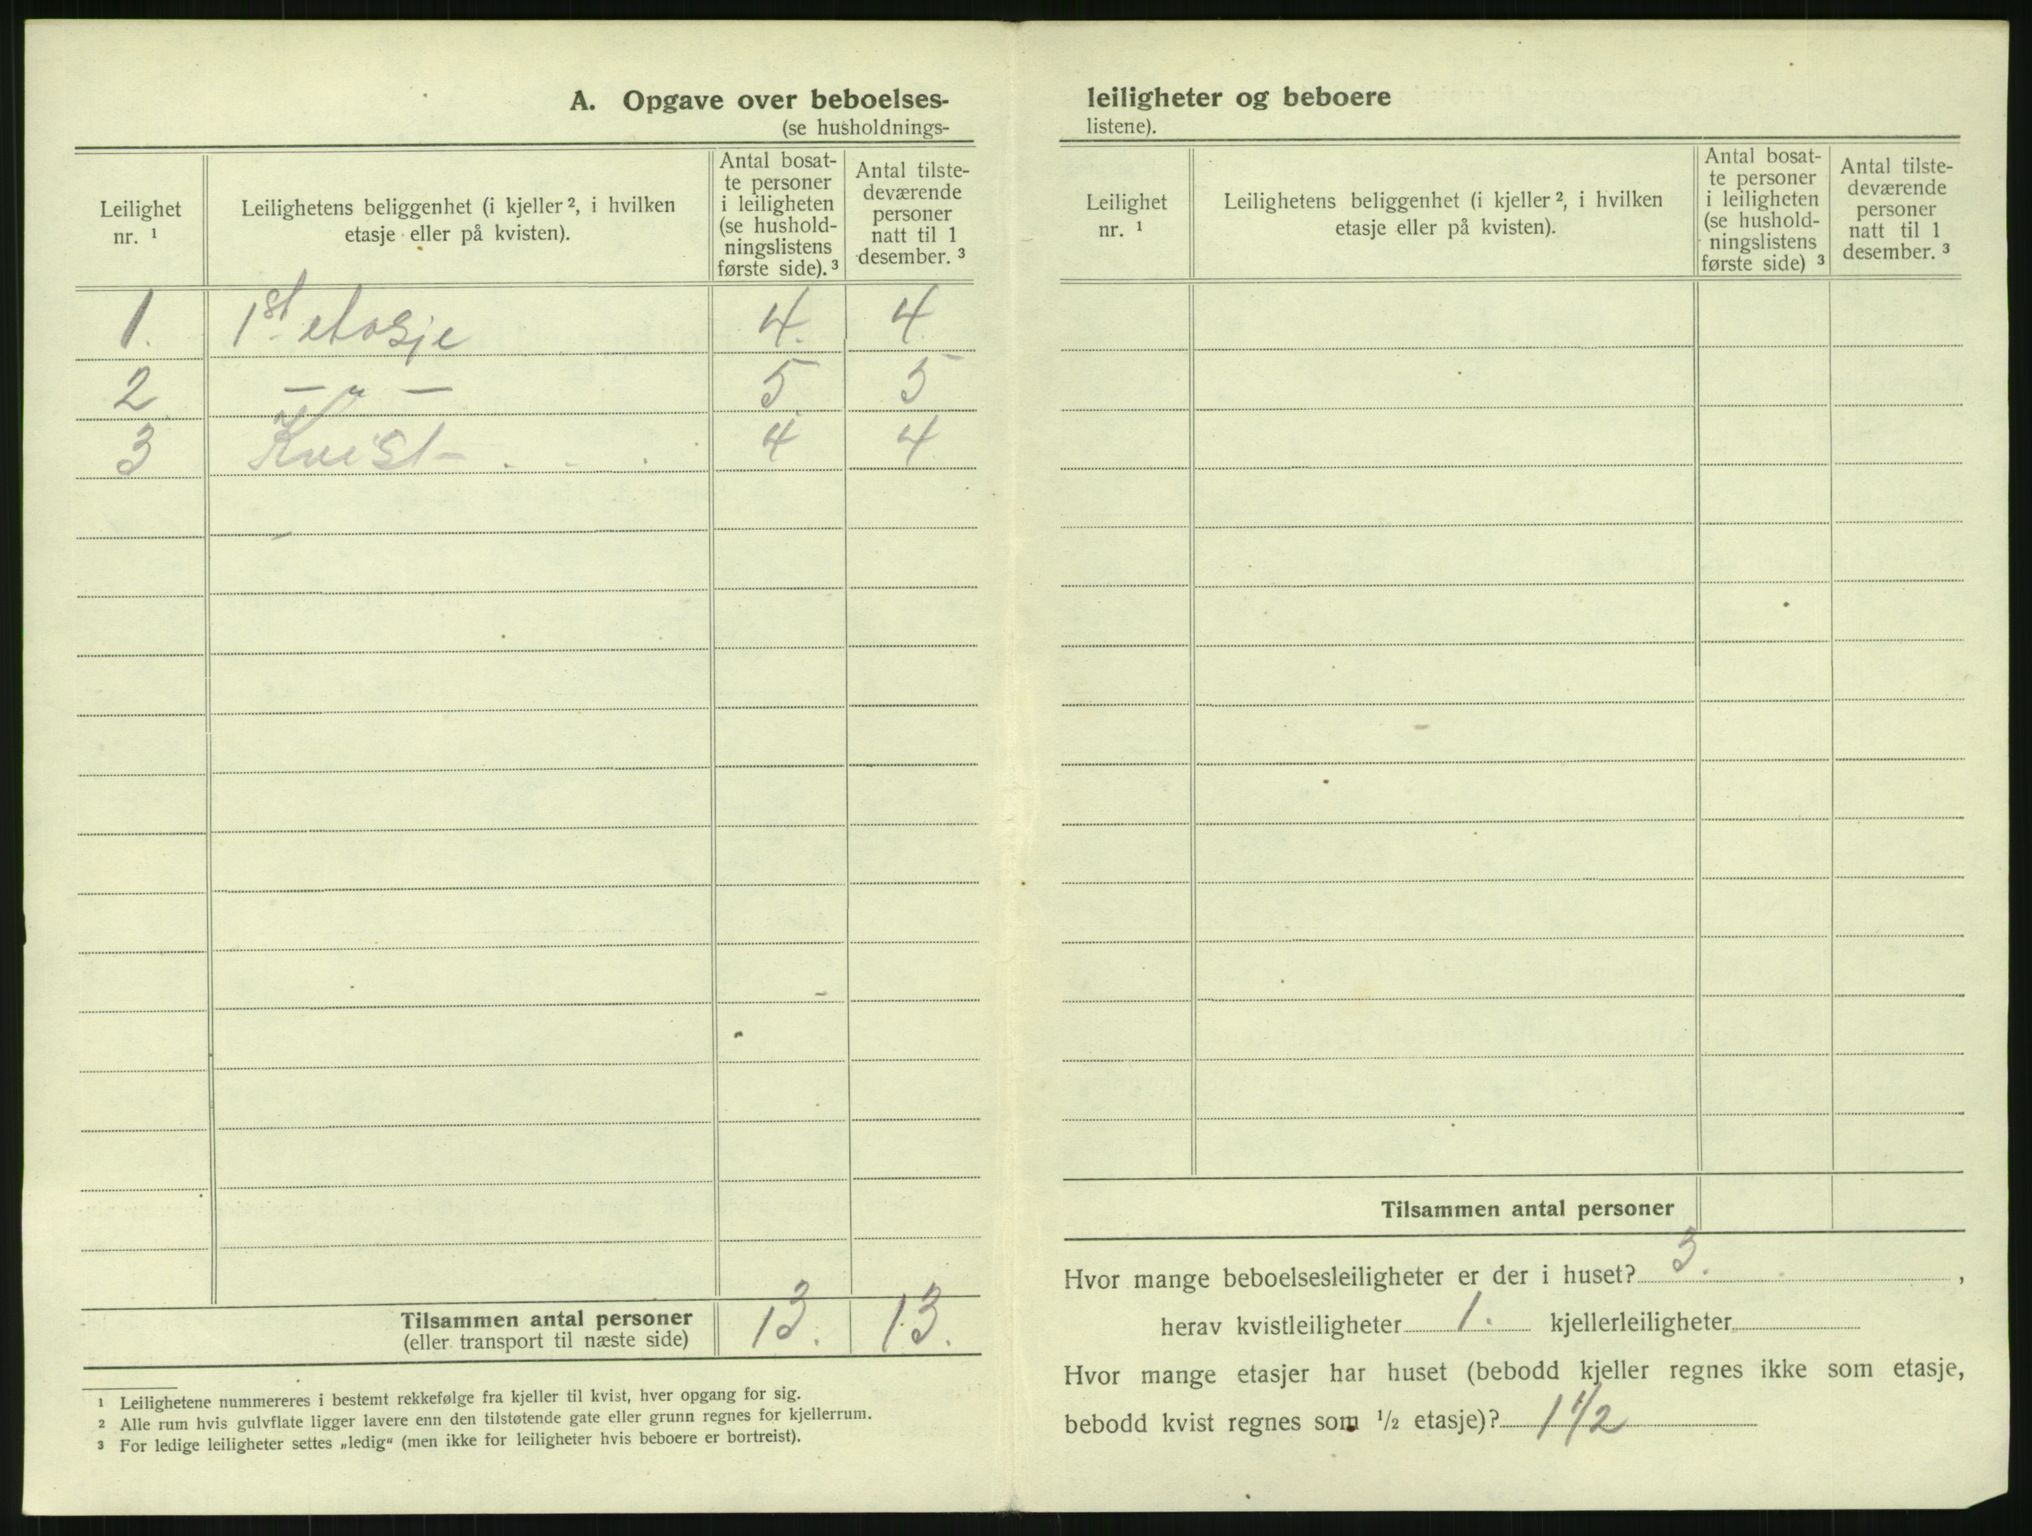 A. Opgave over beboelses-
(se husholdnings-
Leilighet
nr. ¹
Leilighetens beliggenhet (i kjeller ², i hvilken
etasje eller på kvisten).
Antal bosat-
te personer
i leiligheten
(se hushold-
ningslistens
første side). ³
Antal tilste-
deværende
personer
natt til 1
desember. ³
1. 1st. etasje 4. 4
2 — „ — 5 5
3 Kvist 4 4
Tilsammen antal personer 13. 13.
(eller transport til næste side)
¹ Leilighetene nummereres i bestemt rekkefølge fra kjeller til kvist, hver opgang for sig.
² Alle rum hvis gulvflate ligger lavere enn den tilstøtende gate eller grunn regnes for kjellerrum.
³ For ledige leiligheter settes „ledig“ (men ikke for leiligheter hvis beboere er bortreist).
leiligheter og beboere
listene).
Leilighet
nr. ¹
Leilighetens beliggenhet (i kjeller ², i hvilken
etasje eller på kvisten).
Antal bosat-
te personer
i leiligheten
(se hushold-
ningslistens
første side) ³
Antal tilste-
deværende
personer
natt til 1
desember. ³
Tilsammen antal personer
Hvor mange beboelsesleiligheter er der i huset? 3. ,
herav kvistleiligheter 1. kjellerleiligheter
Hvor mange etasjer har huset (bebodd kjeller regnes ikke som etasje,
bebodd kvist regnes som ½ etasje)? 1 1/2